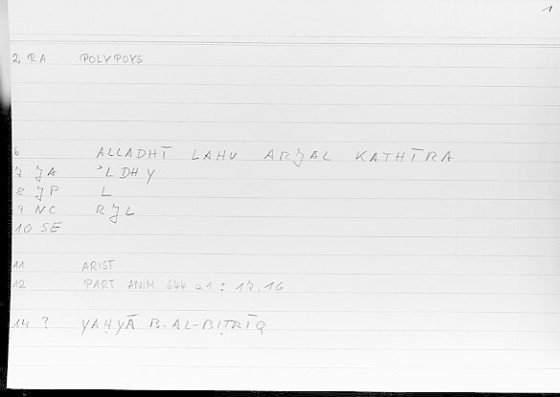 1
2 RA POLYPOYS
6 ALLADHĪ LAHU ARJAL KATHĪRA
7 JA ʾLDHY
8 JP L
9 NC RJL
10 SE
11 ARIST
12 PART ANIM 644 a1 : 17.16
14 ? YAḤYĀ B. AL-BIṬRĪQ